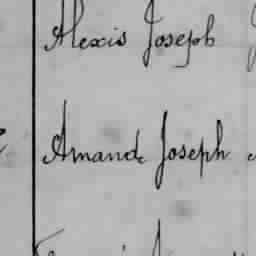 Alexis Joseph
Amand Joseph